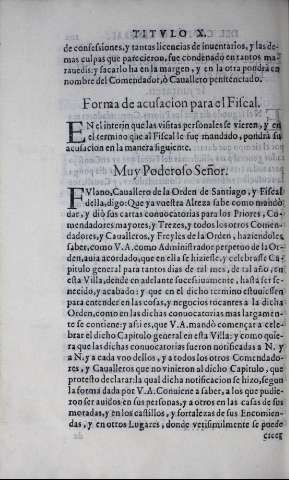 TITVLO X.
de confessiones, y tantas licencias de inuentarios, y las de-
mas culpas que parecieron, fue condenado en tantos ma-
rauedis: y sacarlo ha en la margen, y en la otra pondrà en
nombre del Comendador, ò Cauallero penitenciado.
Forma de acusacion para el Fiscal.
EN el interin que las visitas personales se vieren, y en
el termino que al Fiscal le fue mandado, pondrà su
acusacion en la manera siguiente.
Muy Poderoso Señor.
FVlano, Cauallero de la Orden de Santiago, y Fiscal
della, digo: Que ya vuestra Alteza sabe como mandò
dar, y diò sus cartas conuocatorias para los Priores, Co-
mendadores mayores, y Trezes, y todos los otros Comen-
dadores, y Caualleros, y Freyles de la Orden, haziendoles
saber, como V.A. como Administrador perpetuo de la Or-
den, auia acordado, que en ella se hiziesse, y celebrasse Ca
pitulo general para tantos dias de tal mes, de tal año, en
esta Villa, dende en adelante sucessiuamente, hasta ser fe-
necido, y acabado: y que en el dicho termino estuuiessen
para entender en las cosas, y negocios tocantes a la dicha
Orden, como en las dichas conuocatorias mas largamen-
te se contiene: y assi es, que V.A. mandò començar a cele-
brar el dicho Capitulo general en esta Villa: y como quie-
ra que las dichas conuocatorias fueron notificadas a N. y
a N. y a cada vno dellos, y a todos los otros Comendado-
res, y Caualleros que no vinieron al dicho Capitulo, que
protesto declarar: la qual dicha notificacion se hizo, segun
la forma dada por V.A. Conuiene a saber, a los que pudie-
ron ser auidos en sus personas, y a otros en las casas de sus
moradas, y en los castillos, y fortalezas de sus Encomien-
das, y en otros Lugares, donde verisimilmente se puede
creer